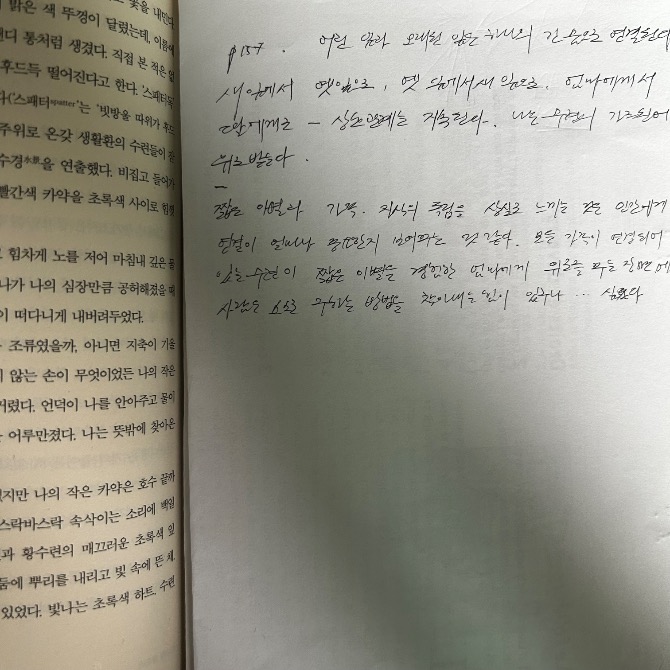 맑은 색 뚜껑이 달렸는데, 이름에
캔디 통처럼 생겼다. 직접 본 적은 없
후드득 떨어진다고 한다. '스패터
다('스패터spatter'는 '빗방울 따위가 후두
주위로 온갖 생활환의 수련들이 잘
수경水景을 연출했다. 비집고 들어가
빨간색 카약을 초록색 사이로 힘껏
힘차게 노를 저어 마침내 깊은 물
나가 나의 심장만큼 공허해졌을 때
이 떠다니게 내버려두었다.
조류였을까, 아니면 지축이 기울
지 않는 손이 무엇이었든 나의 작은
거렸다. 언덕이 나를 안아주고 물이
어루만졌다. 나는 뜻밖에 찾아온
지만 나의 작은 카약은 호수 끝까
스락바스락 속삭이는 소리에 백일
과 황수련의 매끄러운 초록색 잎
둠에 뿌리를 내리고 빛 속에 뜬 채
있었다. 빛나는 초록색 하트. 수련
p157. 어린 잎과 오래된 잎은 하나의 긴 숨으로 연결된다
새 잎에서 옛 잎으로, 옛 잎에서 새 잎으로, 엄마에게서
딸에게로 — 상호관계는 지속된다. 나는 수련의 가르침에
위로받는다.
짧은 이별과 가족. 자식의 독립을 상실로 느끼는 모든 인간에게
연결이 얼마나 중요한지 보여주는 것 같다. 모든 감각이 연결되어
있는 수련이 짧은 이별을 경험한 엄마에게 위로를 주는 장면에
사람은 스스로 구하는 방법을 찾아내는 힘이 있구나 ... 싶었다